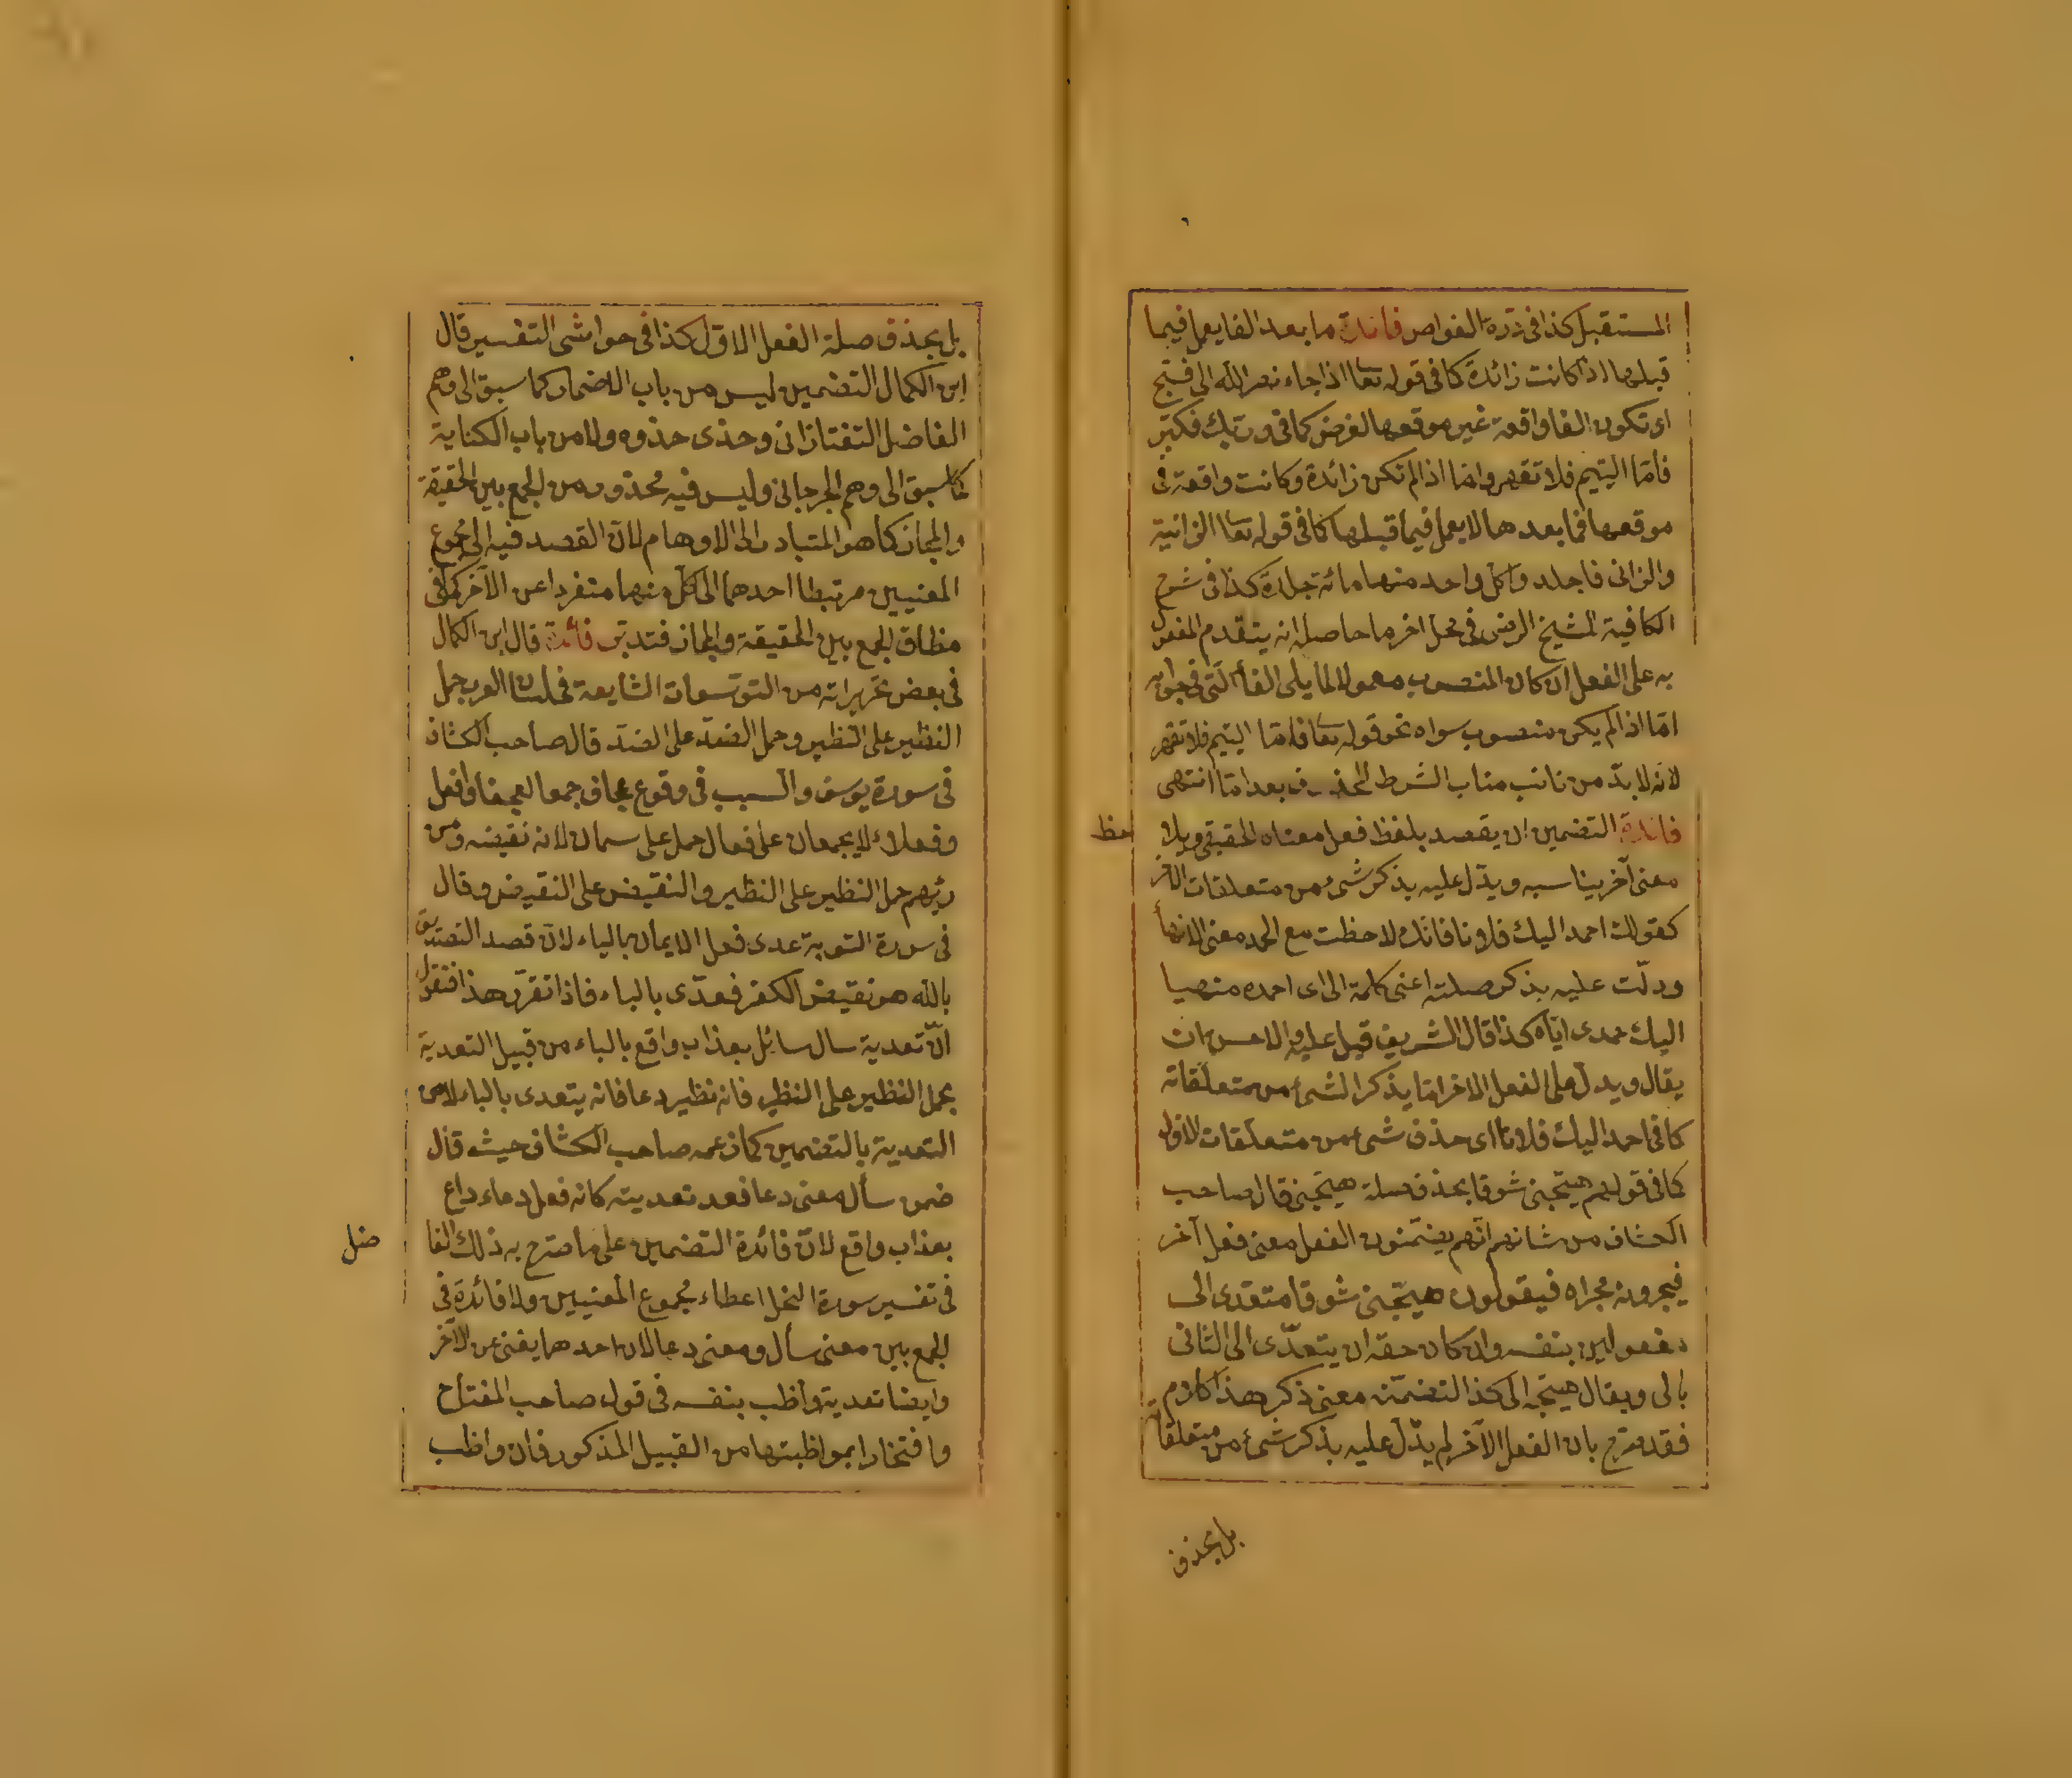 المستقبل كذا فى درة الغواص فائدة ما بعد الفا يعمل فيما
قبلها اذا كانت زائدة كما فى قوله تعا اذا جاء نصر الله الى فسبح
او تكون الفا واقعة غير موقعها لغرض كما فى وربك فكبر
فاما اليتيم فلا تقهر واما اذا لم تكن زائدة وكانت واقعة فى
موقعها فما بعدها لا يعمل فيما قبلها كما فى قوله تعا الزانية
والزانى فاجلدوا كل واحد منهما مائة جلدة كذا فى شرح
الكافية للشيخ الرضى فى محل اخر ما حاصله انه يتقدم المفعول
به على الفعل ان كان المنصوب معمولا لما يلى الفأ التى فى جواب
امّا اذا لم يكن منصوب سواه نحو قوله تعا فامّا اليتيم فلا تقهر
لانه لا بدّ من نائب مناب الشرط المحذوف بعد امّا انتهى
فائدة التضمين ان يقصد بلفظ فعل معناه الحقيقى ويلا
حظ
معنى آخر يناسبه ويدّل عليه بذكر شئ من متعلقات الآخر
كقولك احمد اليك فلانا فانك لاحظت مع الحمد معنى الانهأ
ودلّت عليه بذكر صلته اعنى كلمة الى اى احمده منهيا
اليك حمدى ايّاه كذا قال الشريف قيل عليه والاحسن ان
يقال ويدل على الفعل الاخر امّا يذكر الشئ من متعلّقاته
كما فى احمد اليك فلانا اى حذف شئ من متعلقات الاول
كما فى قولهم هيّجنى شوقا بحذف صلة هيّجنى قال صاحب
الكشاف من شانهم انّهم يضمّنون الفعل معنى فعل آخر
فيجرونه مجراه فيقولون هيّجنى شوقا متعدى الى
مفعولين بنفسه وان كان حقه ان يتعدّى الى الثانى
بالى ويقال هيّجه الى كذا لتضمّنه معنى ذكر هذا كلامه
فقد صرح بان الفعل الآخر لم يدّل عليه بذكر شئ من متعلقاته
بل بحذف
بل بحذف صلة الفعل الاوّل كذا فى حواشى التفسير قال
ابن الكمال التضمين ليس من باب الاضمار كما سبق الى وهم
الفاضل التفتازانى وحذى حذوه ولا من باب الكناية
كما سبق الى وهم الجرجانى وليس فيه محذور من الجمع بين الحقيقة
والمجاز كما هو المتبادر الى الاوهام لانّ القصد فيه الى مجموع
المعنيين مرتبطا احدهما الى كلّ منهما منفردا عن الآخر كما فى
مظاق الجمع بين الحقيقة والمجاز فتدبّر فائدة قال ابن الكمال
فى بعض تحريراته من التوسّعات الشايعة فى لسان العرب حمل
النظير على النظير وحمل الضدّ على الضدّ قال صاحب الكشاف
فى سورة يوسف والسبب فى وقوع عجاف جمعا لعجفا وافعل
وفعلاء لا يجمعان على فعال حمل على سمان لانه نقيضه ومن
دأبهم حمل النظير على النظير والنقيض على النقيض وقال
فى سورة التوبة عدى فعل الايمان بالباء لانّ قصد التصديق
بالله هو نقيض الكفر فعدّى بالباء فاذا تقرّر هذا فنقول
انّ تعدية سال سائل بعذاب واقع بالباء من قبيل التعدية
بحمل النظير على النظير فانه نظير دعا فانه يتعدى بالباء لا من
التعدية بالتضمين كما زعمه صاحب الكشاف حيث قال
ضمن سأل معنى دعا فعد تعديته كانه فعل دعاء داع
بعذاب واقع لانّ فائدة التضمين على ما صرح به ذلك الفا
ضل
فى تفسير سورة النحل اعطاء مجموع المعنيين ولا فائدة فى
الجمع بين معنى سأل ومعنى دعا لان احدهما يغنى عن الآخر
وايضا تعدية واظب بنفسه فى قول صاحب المفتاح
وافتخارا بمواظبتها من القبيل المذكور فان واظب